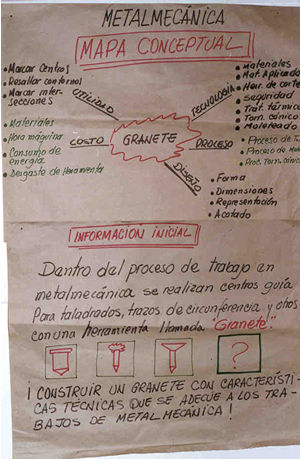 METALMECÁNICA
MAPA CONCEPTUAL
• Marcar Centros
• Resaltar contornos
• Marcar inter-
secciones
UTILIDAD
• Materiales
• Hora máquina
• Consumo de
energía
• Desgaste de Herramienta
COSTO
GRANETE
TECNOLOGIA
• Materiales
• Mat. Aplicada
• Her. de corte
• Seguridad
• Trat. térmico
• Torn. cónico
• Moleteado
PROCESO
• Proceso de
• Proceso de
• Proc. Torn. Cónico
DISEÑO
• Forma
• Dimensiones
• Representación
• Acotado
INFORMACION INICIAL
Dentro del proceso de trabajo en
metalmecánica se realizan centros guía
Para taladrados, trazos de circunferencia y otros
con una herramienta llamada "Granete".
?
¡ CONSTRUIR UN GRANETE CON CARACTERÍSTI-
CAS TÉCNICAS QUE SE ADECUE A LOS TRA-
BAJOS DE METAL MECÁNICA !